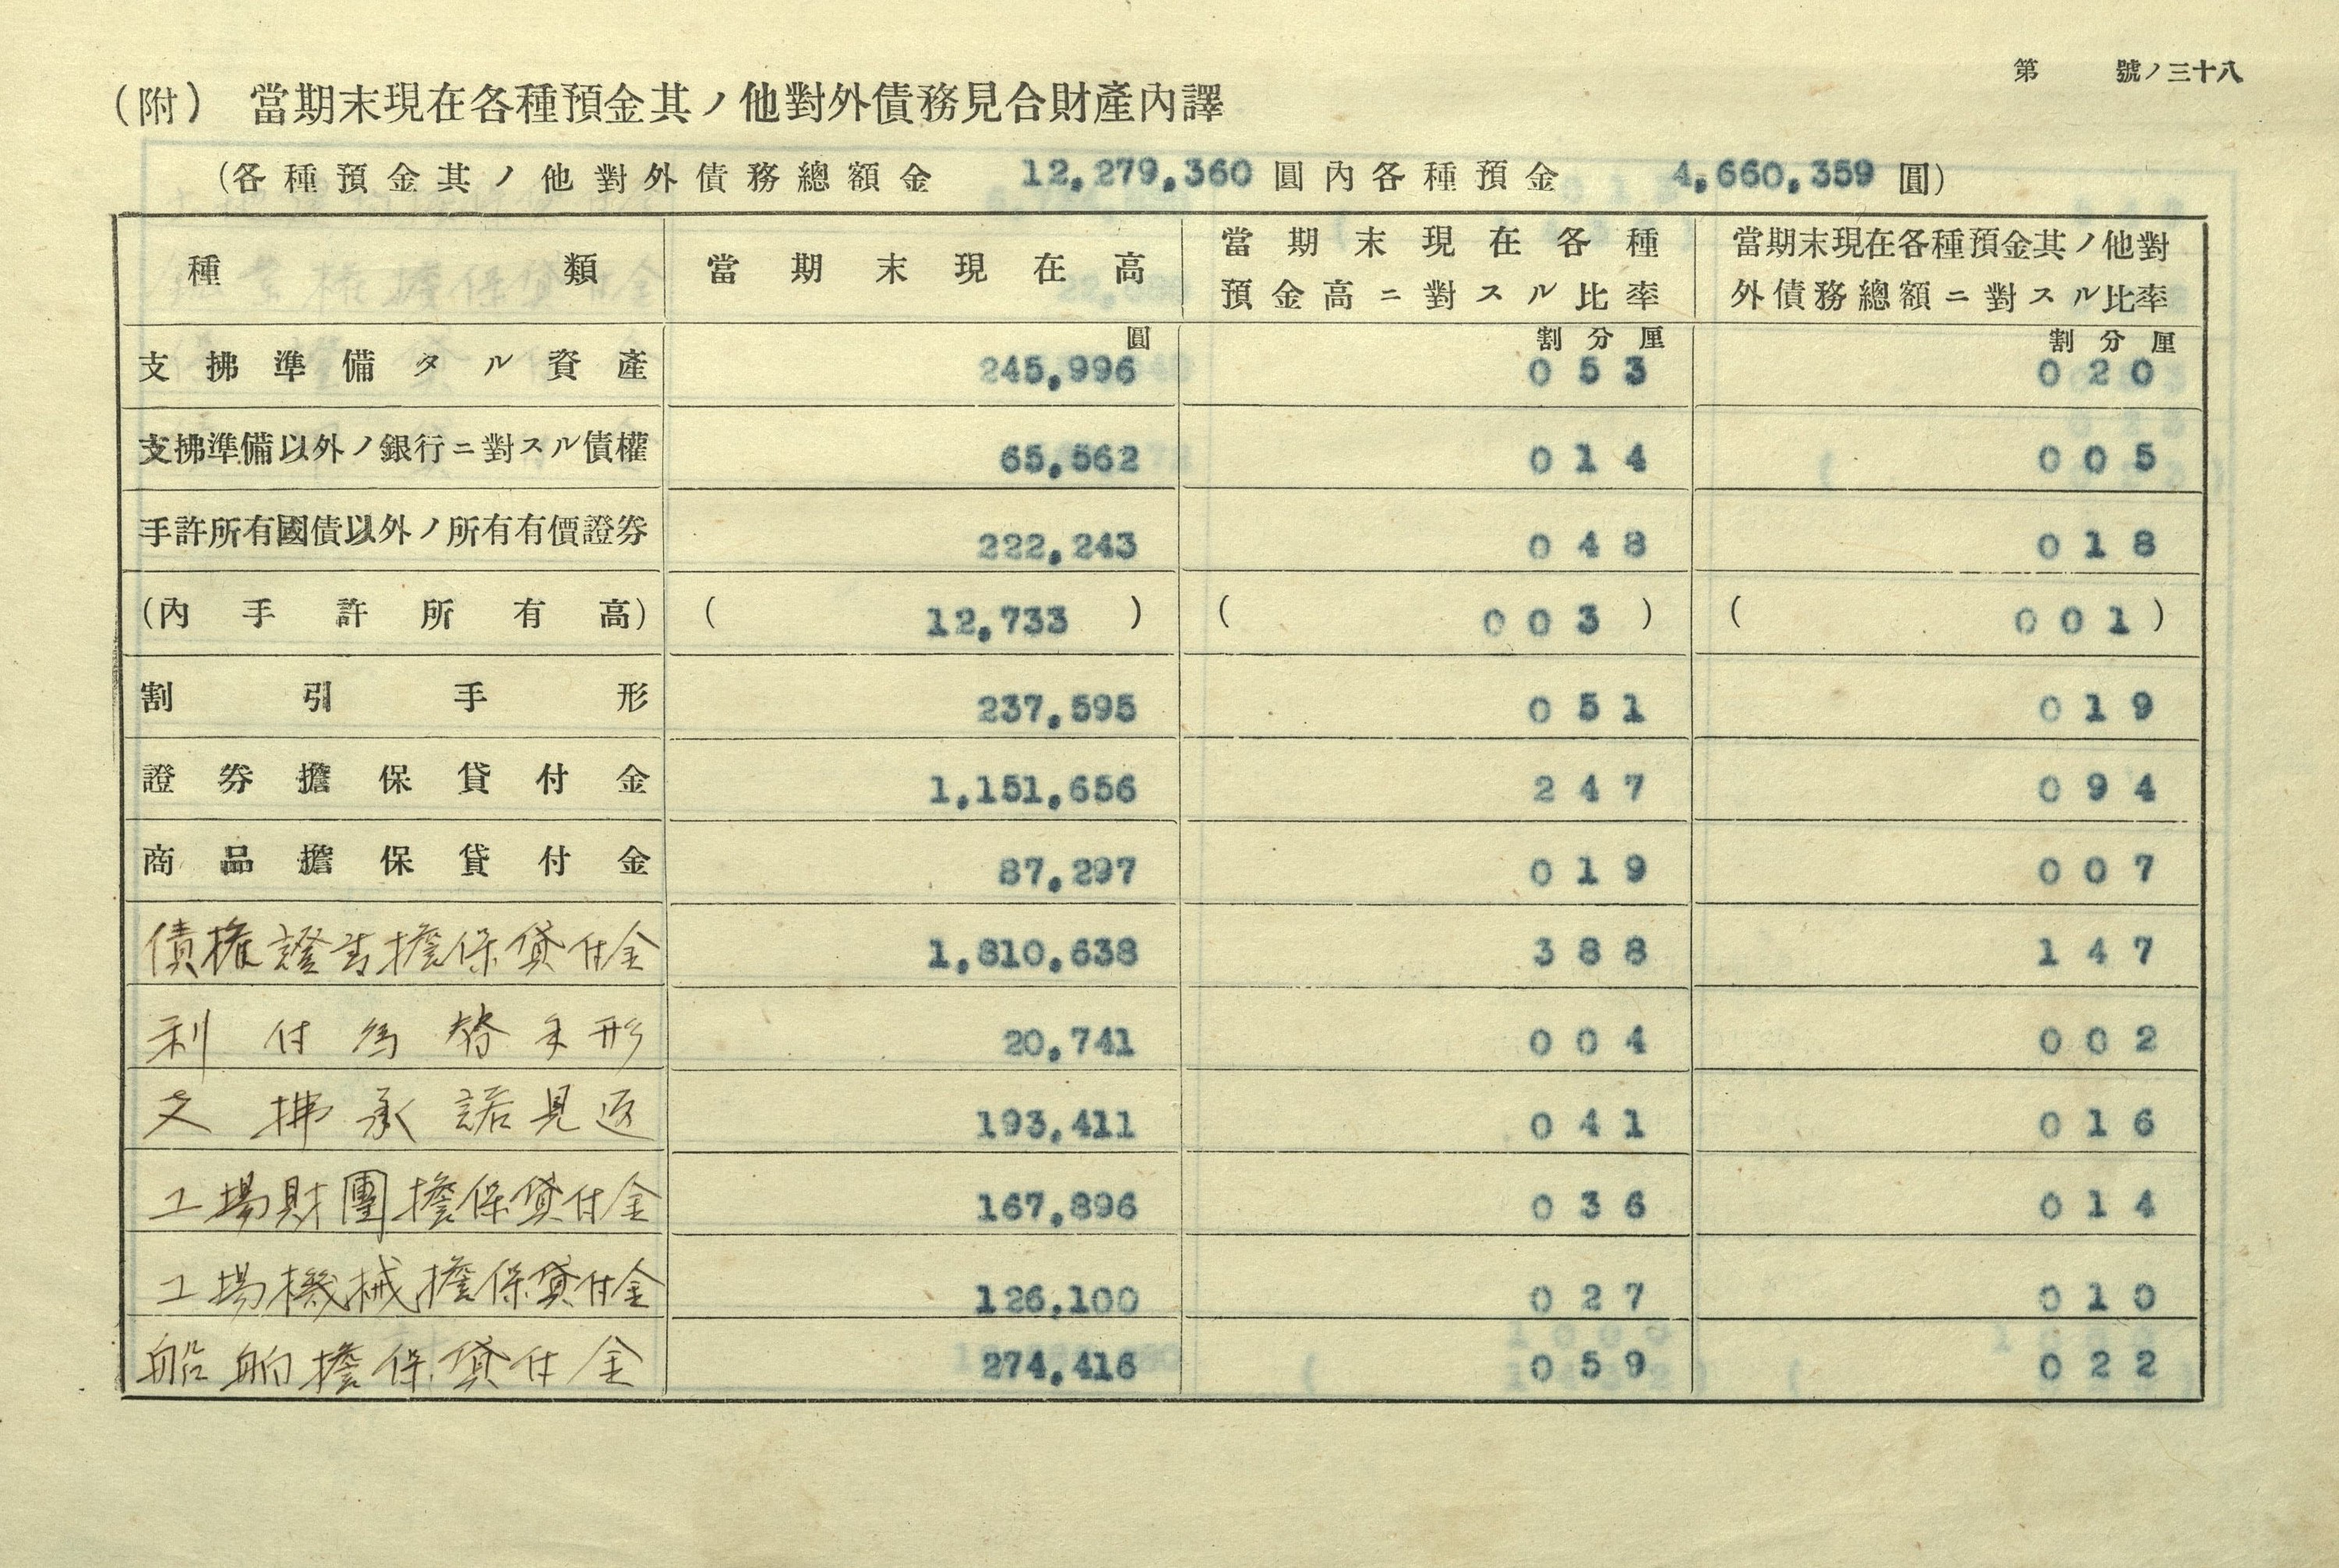 第 號ノ三十八
(附) 當期末現在各種預金其ノ他對外債務見合財產內譯
(各種預金其ノ他對外債務總額金 12,279,360 圓內各種預金 4,660,359 圓)
種類 當期末現在高 當期末現在各種預金高ニ對スル比率 當期末現在各種預金其ノ他對外債務總額ニ對スル比率
圓 割分厘 割分厘
支拂準備タル資產 245,996 053 020
支拂準備以外ノ銀行ニ對スル債權 65,562 014 005
手許所有國債以外ノ所有有價證券 222,243 048 018
(內手許所有高) (12,733) (003) (001)
割引手形 237,595 051 019
證券擔保貸付金 1,151,656 247 094
商品擔保貸付金 87,297 019 007
債權證書擔保貸付金 1,810,638 388 147
利付為替手形 20,741 004 002
支拂承諾見返 193,411 041 016
工場財團擔保貸付金 167,896 036 014
工場機械擔保貸付金 126,100 027 010
船舶擔保貸付金 274,416 059 022